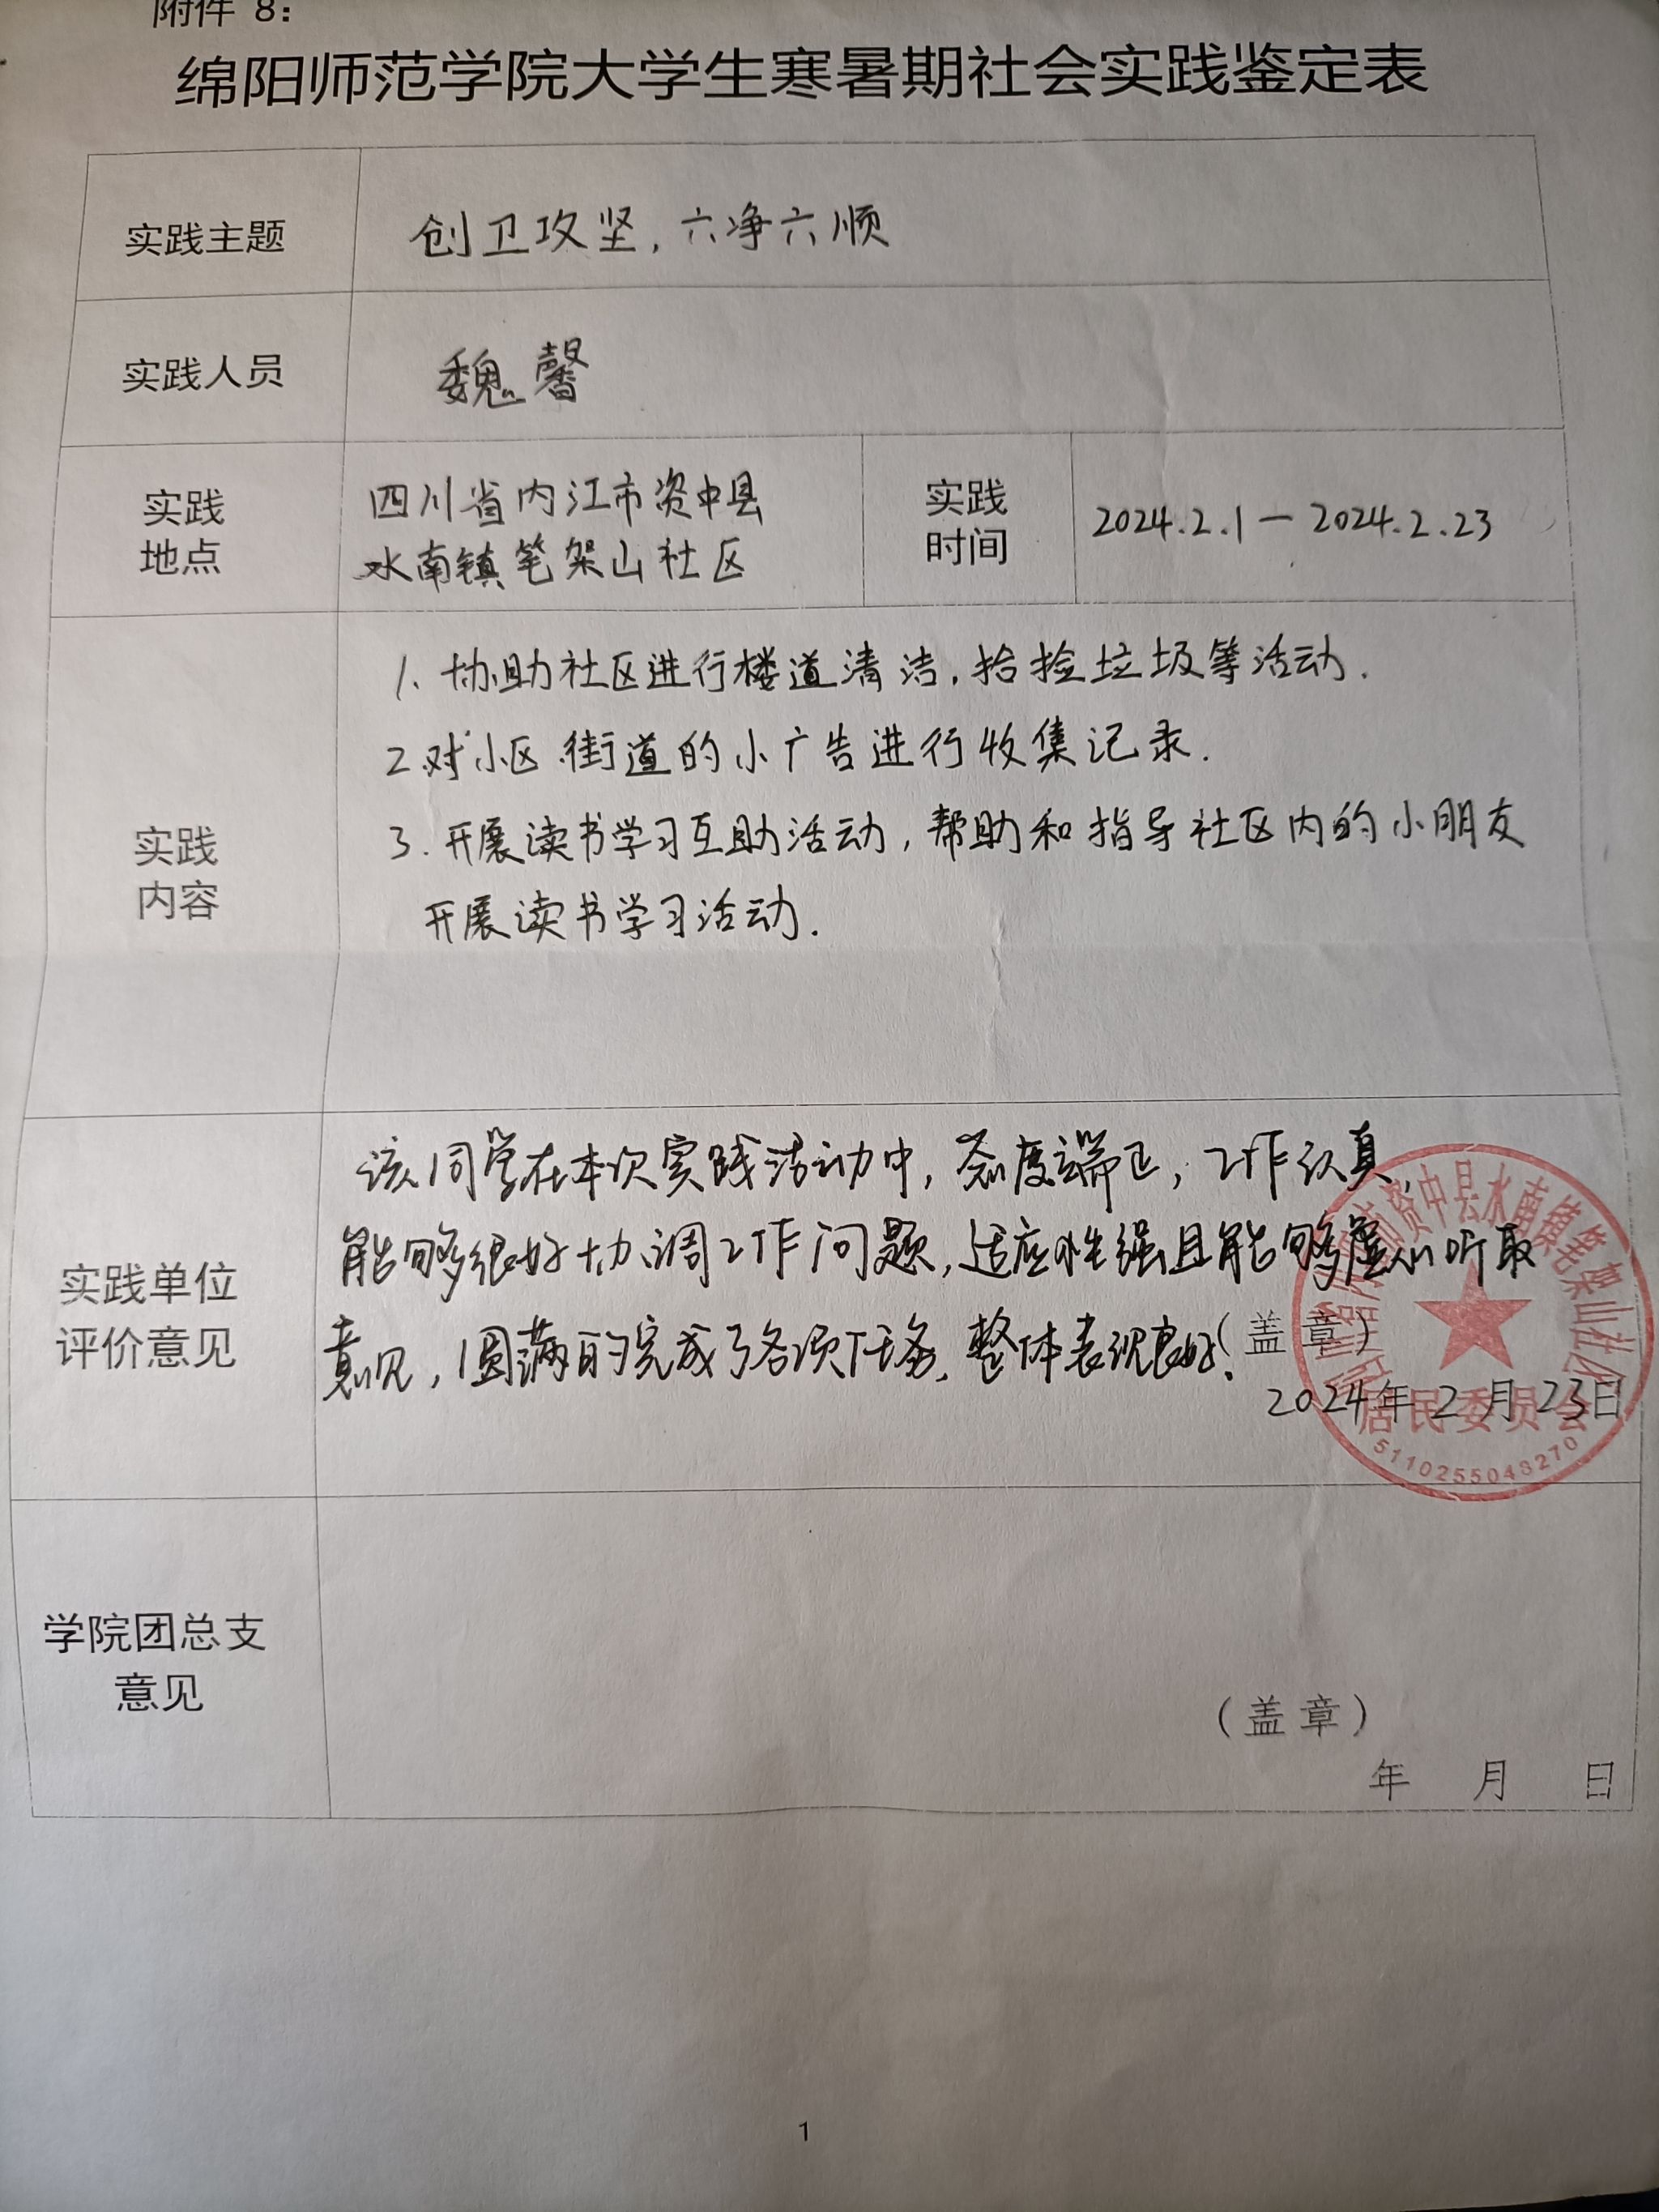 附件 8：
绵阳师范学院大学生寒暑期社会实践鉴定表
实践主题
创卫攻坚，六净六顺
实践人员
魏馨
实践
地点
四川省内江市资中县
水南镇笔架山社区
实践
时间
2024.2.1 — 2024.2.23
实践
内容
1. 协助社区进行楼道清洁，拾捡垃圾等活动.
2.对小区街道的小广告进行收集记录.
3. 开展读书学习互助活动，帮助和指导社区内的小朋友
开展读书学习活动.
实践单位
评价意见
该同学在本次实践活动中，态度端正，工作认真，
能够很好协调工作问题，适应性强且能够虚心听取
意见，圆满的完成了各项任务，整体表现良好.
（盖章）
2024年2月23日
资中县水南镇笔架山社区
居民委员会
5110255048270
学院团总支
意见
（盖章）
年 月 日
1